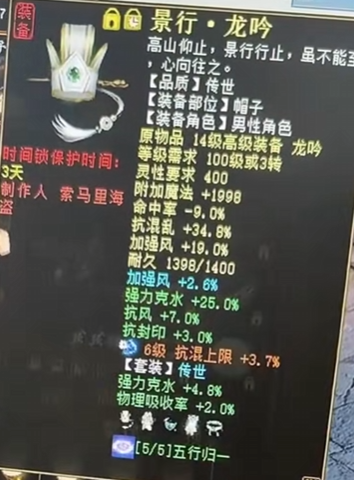 装备
景行·龙吟
高山仰止，景行行止，虽不能至
，心向往之。
【品质】传世
【装备部位】帽子
【装备角色】男性角色
原物品 14级高级装备 龙吟
等级需求 100级或3转
灵性要求 400
附加魔法 +1998
命中率 -9.0%
抗混乱 +34.8%
加强风 +19.0%
耐久 1398/1400
加强风 +2.6%
强力克水 +25.0%
抗风 +7.0%
抗封印 +3.0%
6级 抗混上限 +3.7%
【套装】传世
强力克水 +4.8%
物理吸收率 +2.0%
[5/5]五行归一
时间锁保护时间：
3天
制作人 索马里海
盗